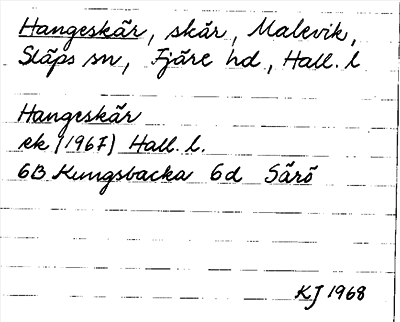 Hangeskär, skär, Malevik,
Släps sn, Fjäre hd, Hall. l
Hangeskär
ek (1967) Hall. l.
6B Kungsbacka 6d Särö
KJ 1968